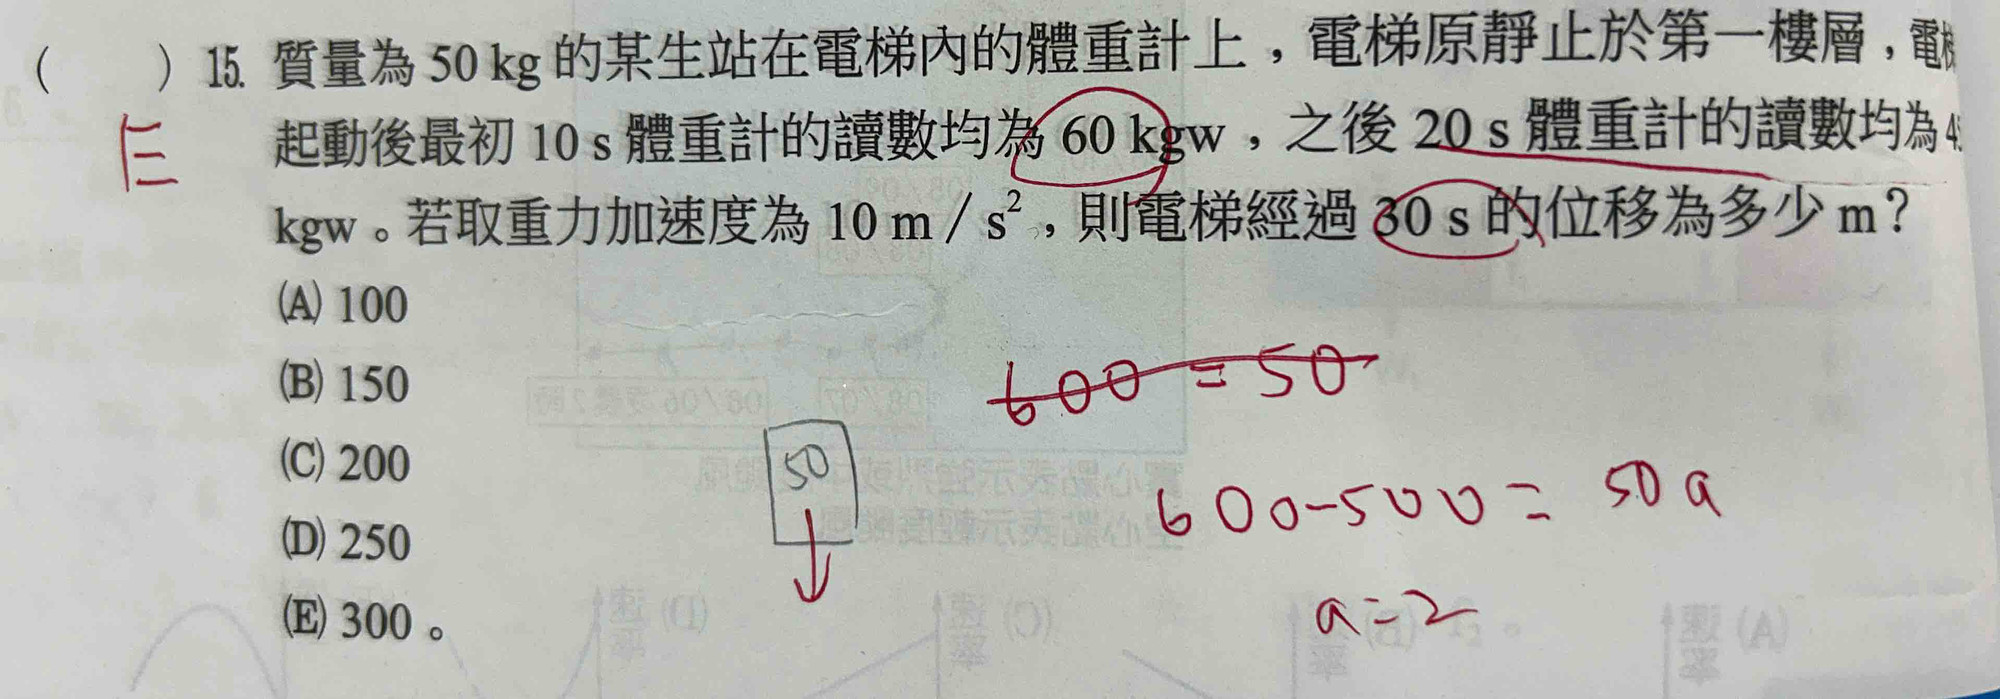 ( ) 15. 質量為 50 kg 的某生站在電梯內的體重計上，電梯原靜止於第一樓層，電梯
E 起動後最初 10 s 體重計的讀數均為 60 kgw，之後 20 s 體重計的讀數均為 45
kgw。若取重力加速度為 10 m／s²，則電梯經過 30 s 的位移為多少 m？
(A) 100
(B) 150
(C) 200
(D) 250
(E) 300。
600 = 50
50
600-500 = 50a
a=2